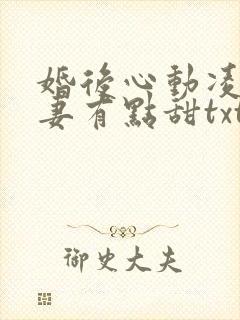 婚後心動凌
妻有點甜txt
御史大夫